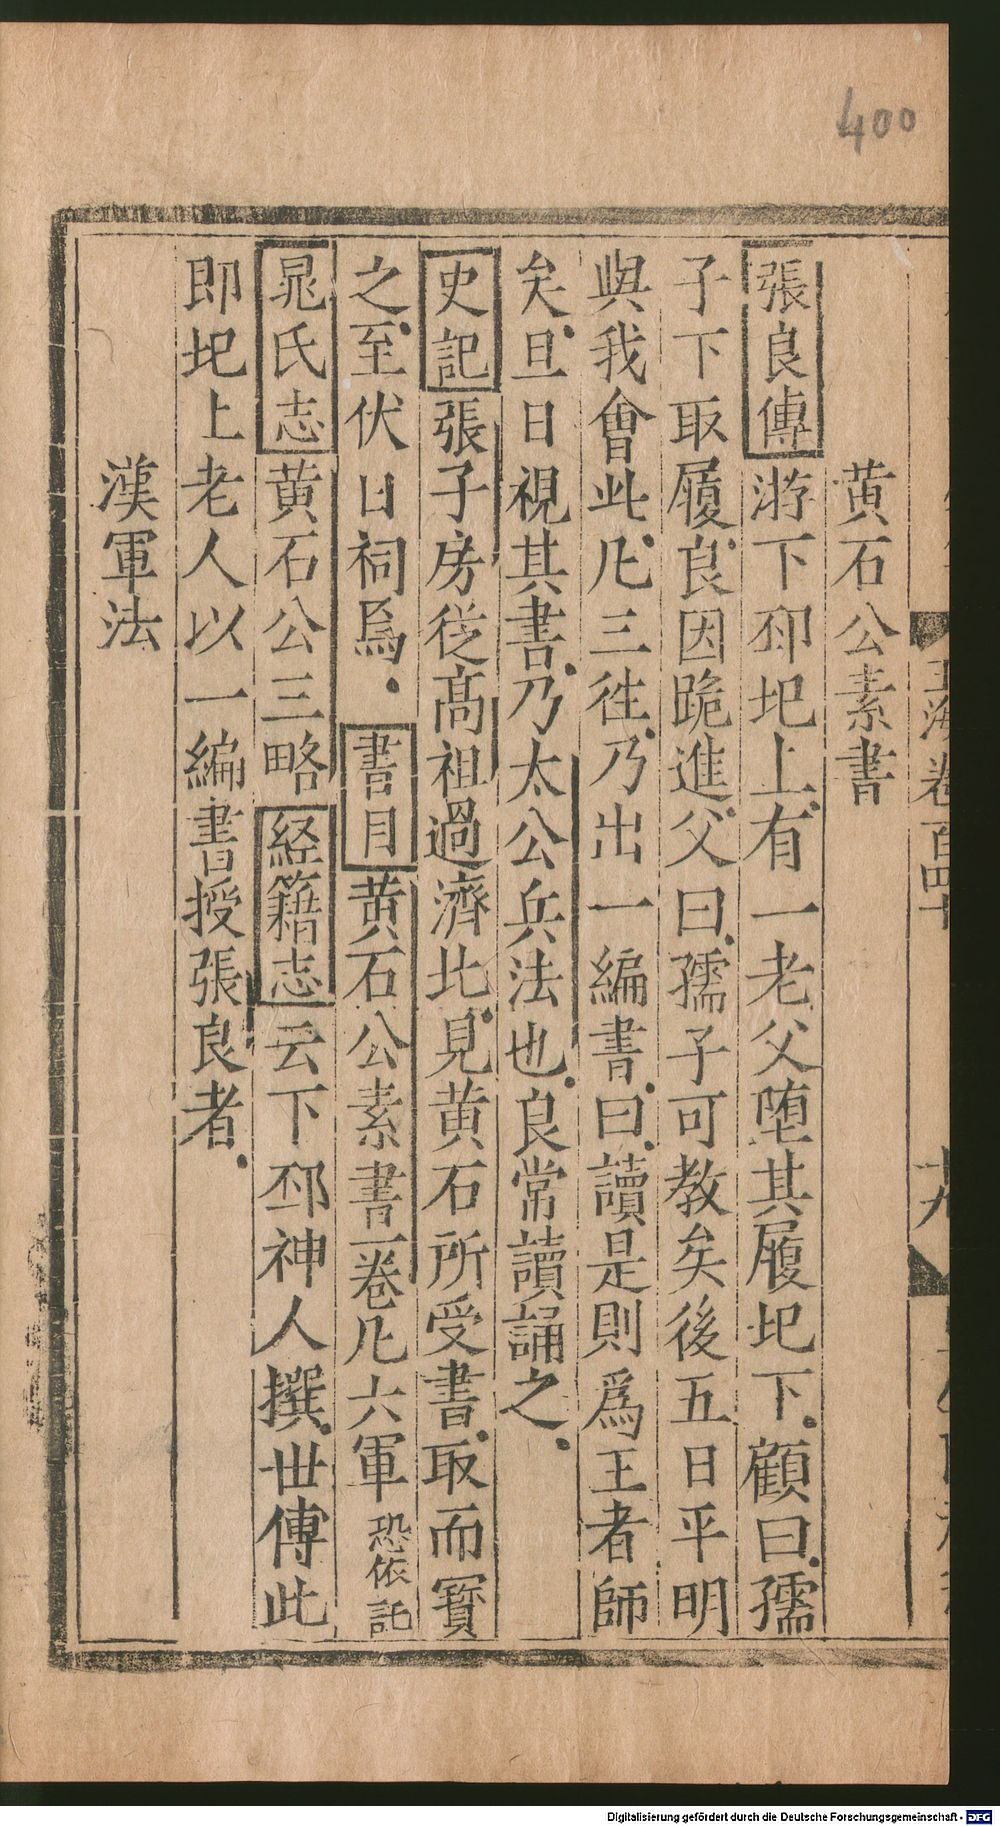 400
玉海卷百四十
十九
黄石公素書
張良傳游下邳圯上有一老父堕其履圯下顧曰孺
子下取履良因跪進父曰孺子可教矣後五日平明
與我會此凡三往乃出一編書曰讀是則爲王者師
矣旦日視其書乃太公兵法也良常讀誦之
史記張子房從高祖過濟北見黄石所受書取而寳
之至伏日祠焉書目黄石公素書一卷凡六軍恐依託
晁氏志黄石公三略経籍志云下邳神人撰世傳此
即圯上老人以一編書授張良者
漢軍法
Digitalisierung gefördert durch die Deutsche Forschungsgemeinschaft - DFG